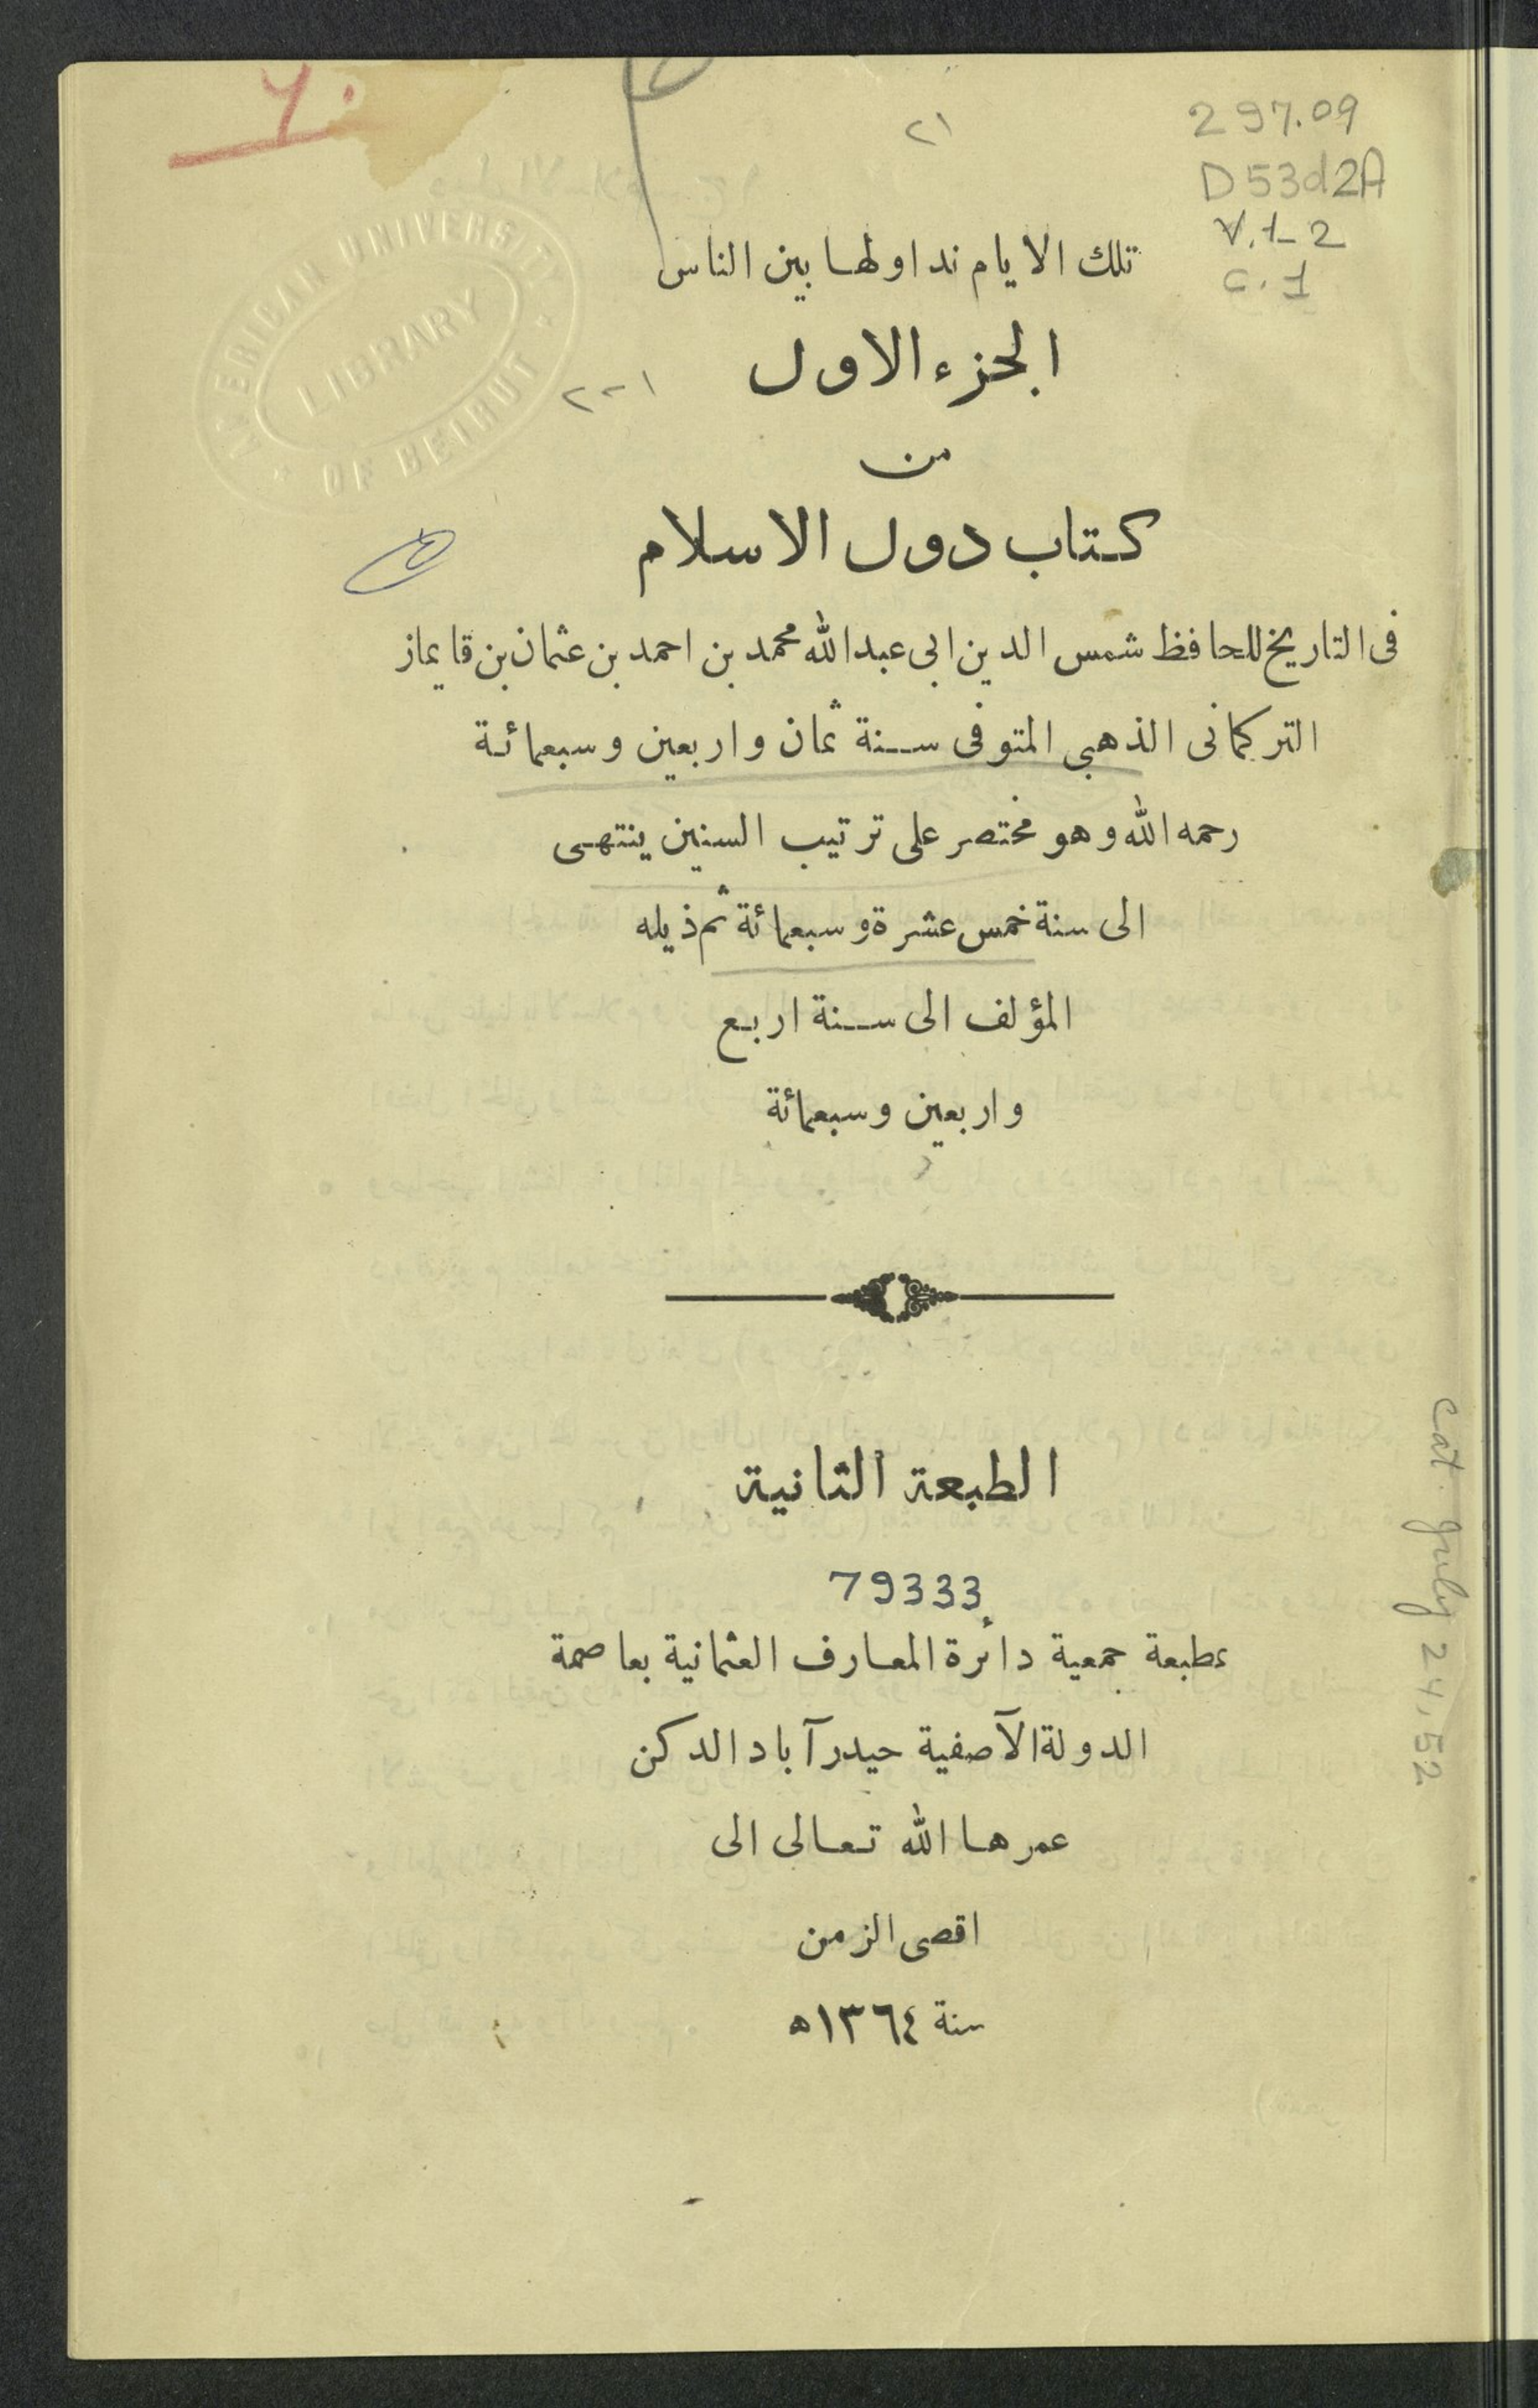 297.09
D53d2A
V.1-2
C.1
٢١
AMERICAN UNIVERSITY
LIBRARY
OF BEIRUT
تلك الايام نداولها بين الناس
الجزء الاول
من
كتاب دول الاسلام
فى التاريخ للحافظ شمس الدين ابى عبدالله محمد بن احمد بن عثمان بن قايماز
التركمانى الذهبى المتوفى سنة ثمان واربعين وسبعمائة
رحمه الله وهو مختصر على ترتيب السنين ينتهى
الى سنة خمس عشرة وسبعمائة ثم ذيله
المؤلف الى سنة اربع
واربعين وسبعمائة
الطبعة الثانية
79333
بمطبعة جمعية دائرة المعارف العثمانية بعاصمة
الدولة الآصفية حيدرآباد الدكن
عمرها الله تعالى الى
اقصى الزمن
سنة ١٣٦٤ه
cat. July 24, 52